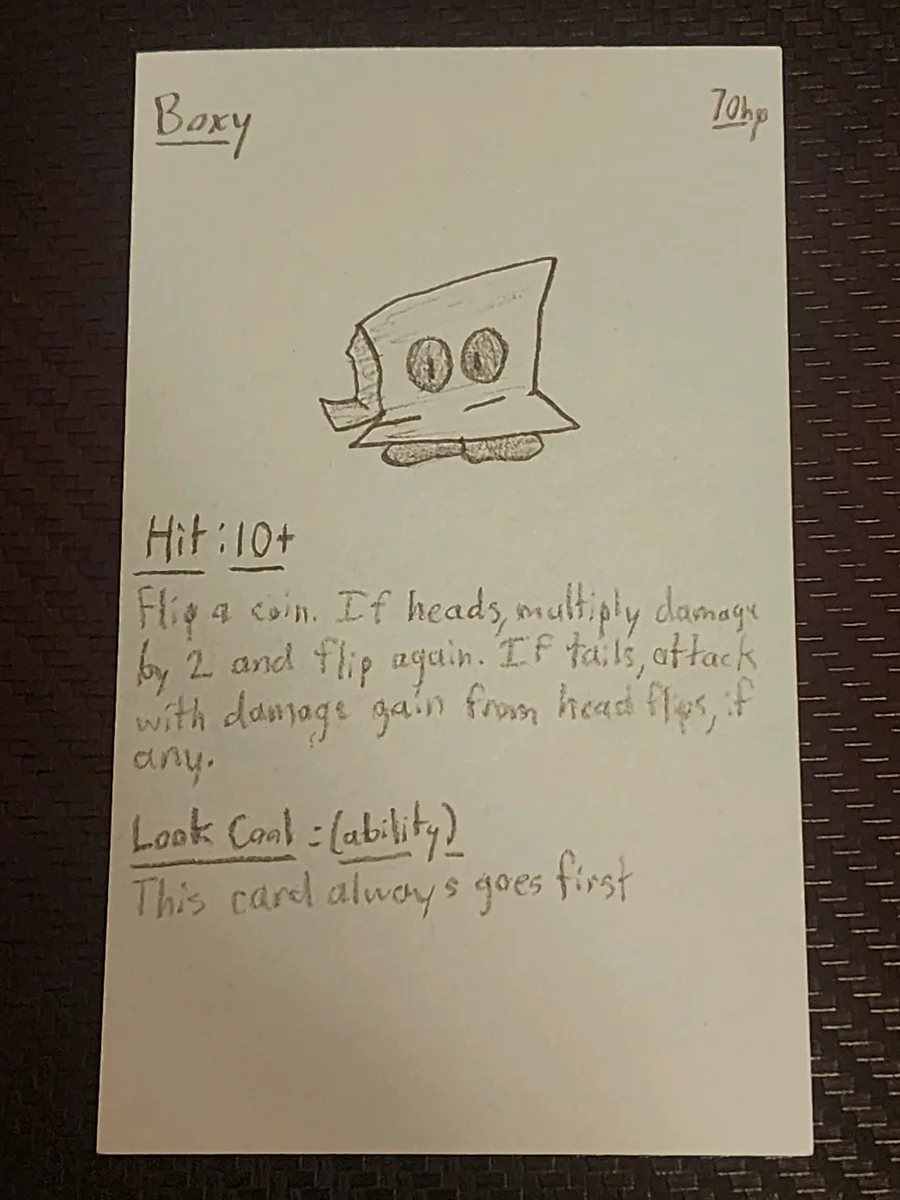 Boxy
70hp
Hit: 10+
Flip a coin. If heads, multiply damage
by 2 and flip again. If tails, attack
with damage gain from head flips, if
any.
Look Cool :(ability)
This card always goes first